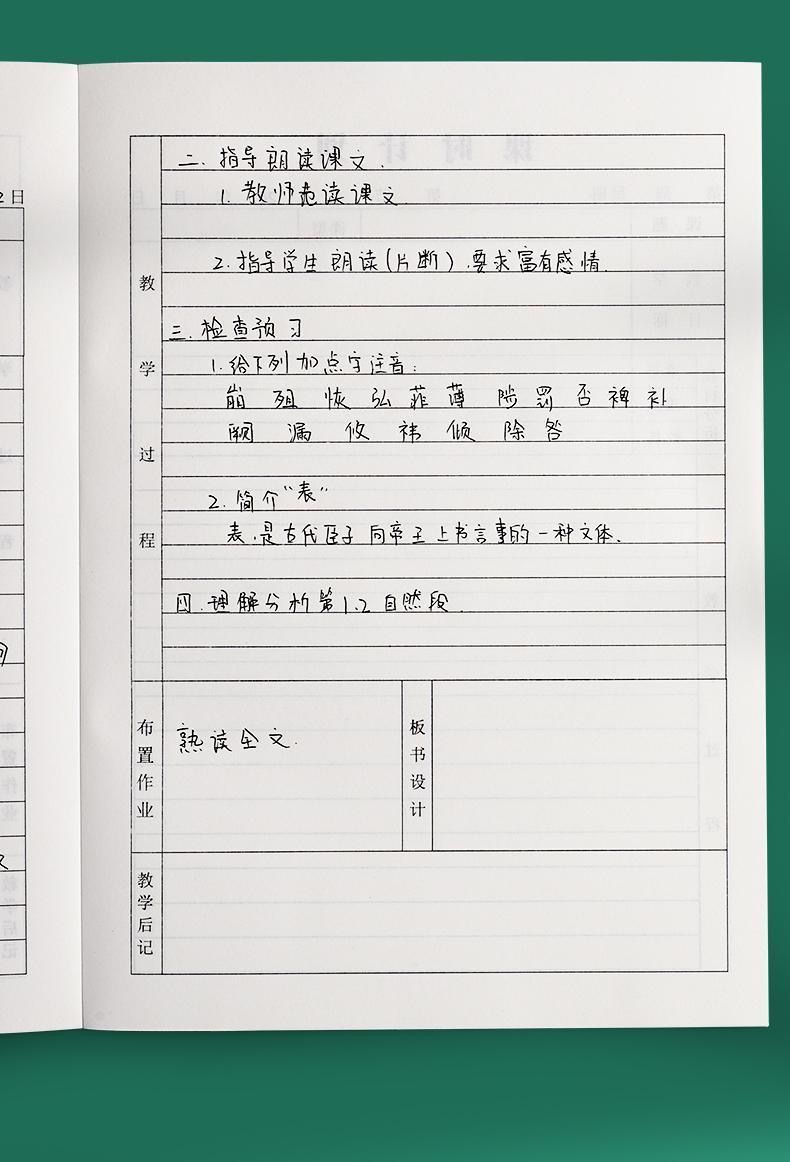 2日
二.指导朗读课文.
1.教师范读课文
2.指导学生朗读(片断).要求富有感情.
教学过程
三.检查预习
1.给下列加点字注音:
崩 殂 恢 弘 菲 薄 陟 罚 否 裨 补
阙 漏 攸 祎 倾 除 咎
2.简介“表”
表.是古代臣子向帝王上书言事的一种文体.
四.理解分析第1.2自然段.
布置作业
熟读全文.
板书设计
教学后记